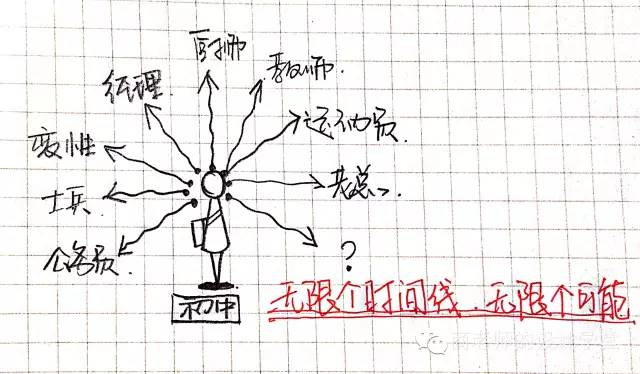 厨师
教师.
经理.
运动员
变性
老总
士兵
?
公务员.
无限个时间线.无限个可能
初中